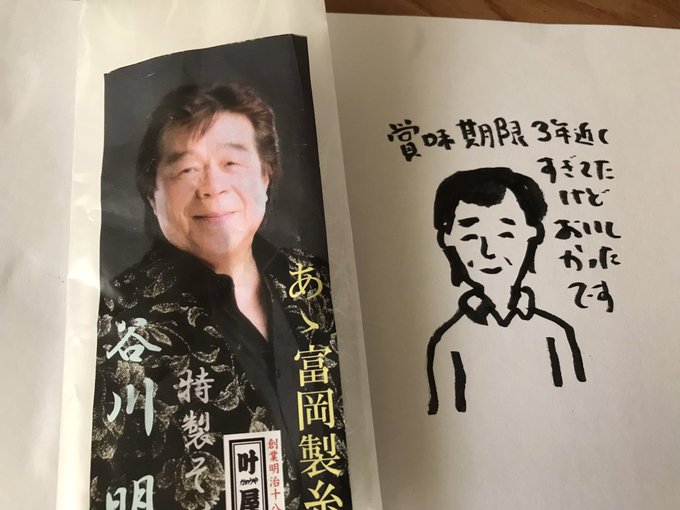 あゝ富岡製糸
谷川明
特製そ
創業明治十八
叶
屋
賞味期限3年近く
すぎてた
けど
おいし
かった
です